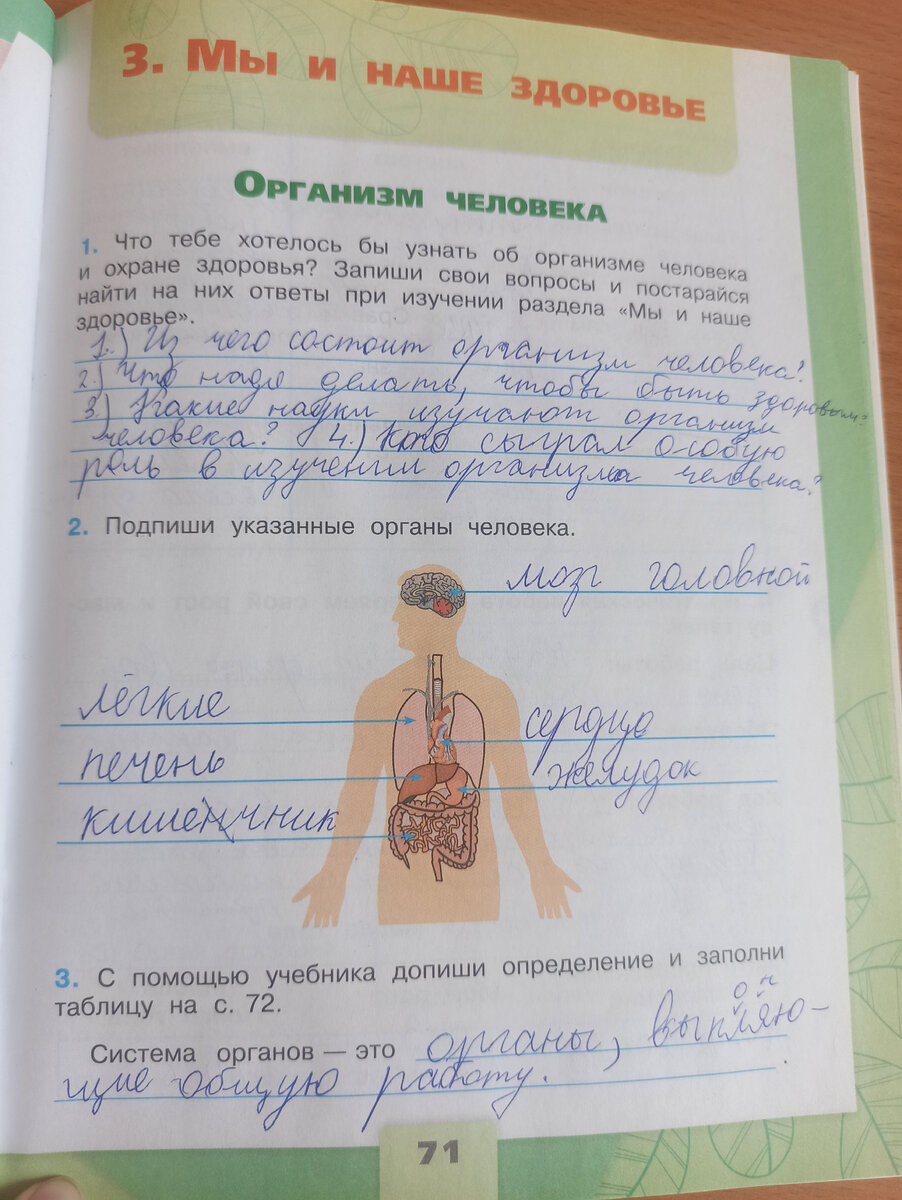 3. Мы и наше здоровье
Организм человека
1. Что тебе хотелось бы узнать об организме человека
и охране здоровья? Запиши свои вопросы и постарайся
найти на них ответы при изучении раздела «Мы и наше
здоровье».
1.) Из чего состоит организм человека?
2.) Что надо делать, чтобы быть здоровым?
3.) Какие науки изучают организм
человека? 4.) Кто сыграл особую
роль в изучении организма человека?
2. Подпиши указанные органы человека.
мозг головной
лёгкие
сердце
печень
желудок
кишечник
3. С помощью учебника допиши определение и заполни
таблицу на с. 72.
Система органов — это органы, выполняю-
щие общую работу.
71